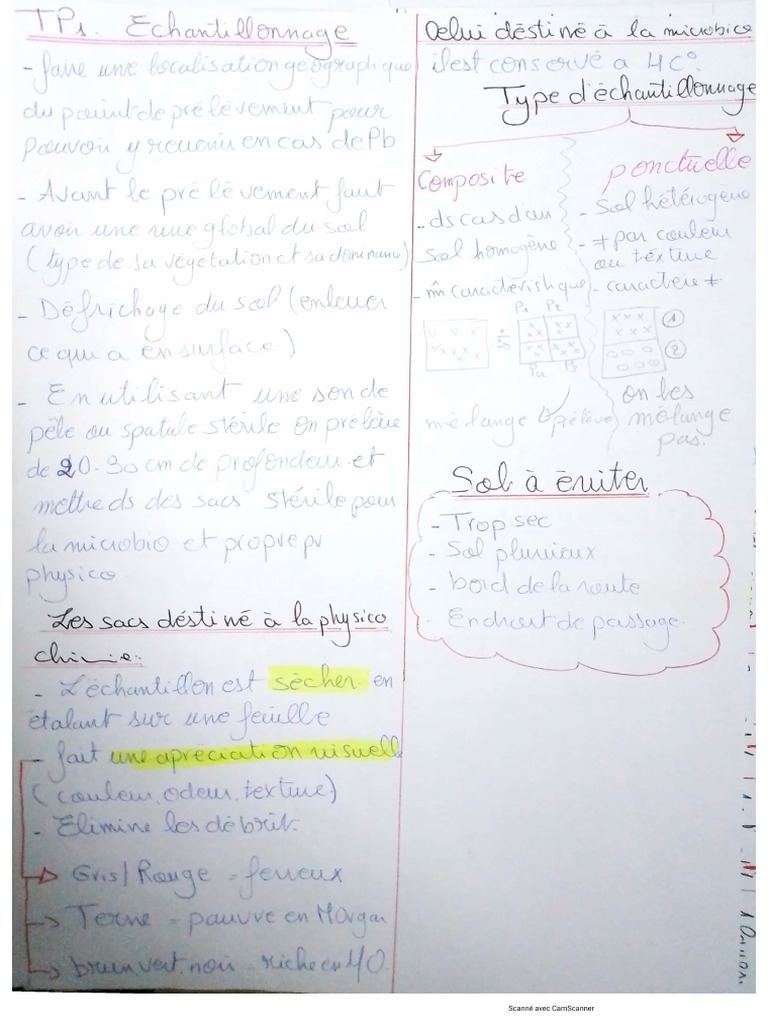 TP1. Echantillonnage
- faire une localisation géographique
du point de prélèvement pour
pouvoir y revenir en cas de Pb
- Avant le prélèvement faut
avoir une vue global du sol
(type de sa végétation et sa dominance)
- Défrichage du sol (enlever
ce qui a en surface)
- En utilisant une sonde
pèle ou spatule stérile on prélève
de 20-30 cm de profondeur et
mettre ds des sacs stérile pour
la microbio et propre pr
physico
Les sacs déstiné à la physico
chimie:
- L'échantillon est sècher en
étalant sur une feuille
- fait une apréciation visuell
(couleur, odeur, texture)
- Elimine les débrit.
Gris/Rouge = ferreux
Terne = pauvre en M organ
brun vert, noir = riche en MO.
Celui déstiné à la microbio
il est conservé a 4C°.
Type d'échantillonnage
Composite
- ds cas d'un
sol homogène
- m̂ caractéristique
P1 P2
P4 P3
mélange prélève
ponctuelle
- Sol hétérogène
- ≠ par couleur
ou texture
- caractère ≠
1
2
on les
mélange
pas.
Sol à éviter
- Trop sec
- Sol pluvieux
- bord de la route
- Endroit de passage.
Scanné avec CamScanner